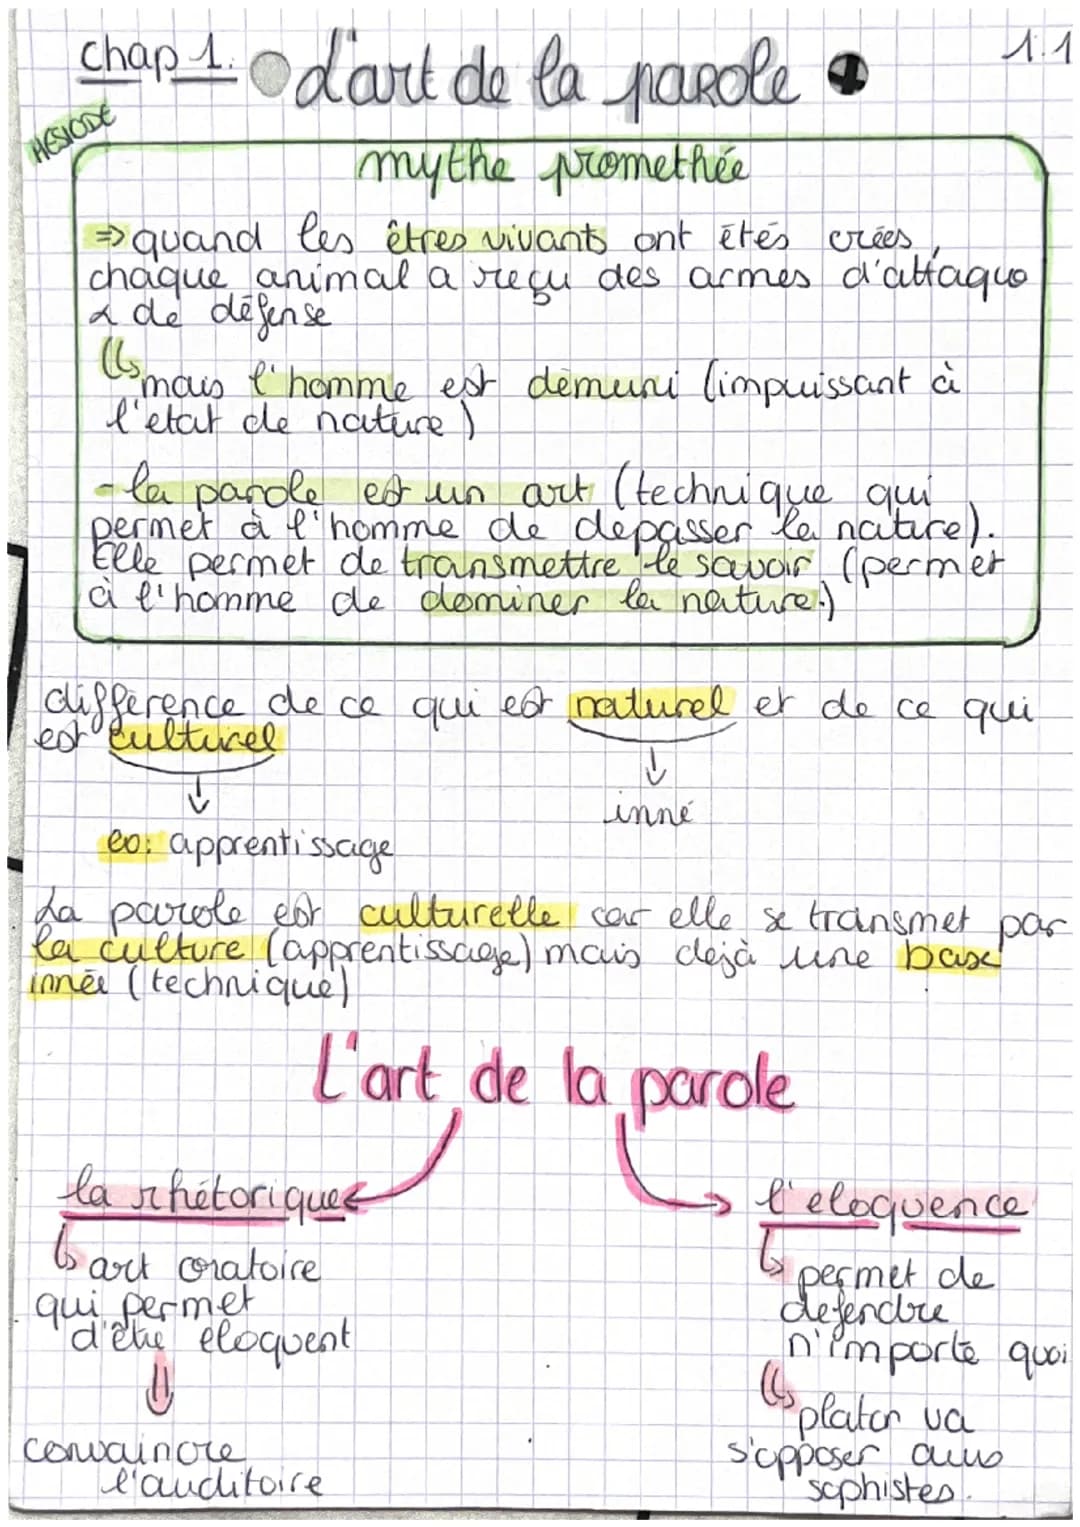 chap 1.
L'art de la parole
1.1
HESIODE
mythe promethée
⇒ quand les êtres vivants ont étés crées,
chaque animal a reçu des armes d'attaque
& de défense
mais l'homme est démuni (impuissant à
l'etat de nature)
- la parole est un art (technique qui
permet à l'homme de depasser la nature).
Elle permet de transmettre le savoir (permet
à l'homme de dominer la nature.)
différence de ce qui est naturel et de ce qui
est culturel
inné
ex: apprentissage
La parole est culturelle car elle se transmet par
la culture (apprentissage) mais dejà une base
innée (technique)
L'art de la parole
la rhétorique
art oratoire
qui permet
d'être eloquent
convaincre
l'auditoire
l'eloquence
permet de
defendre
n'importe quoi
platon va
s'opposer aux
sophistes.